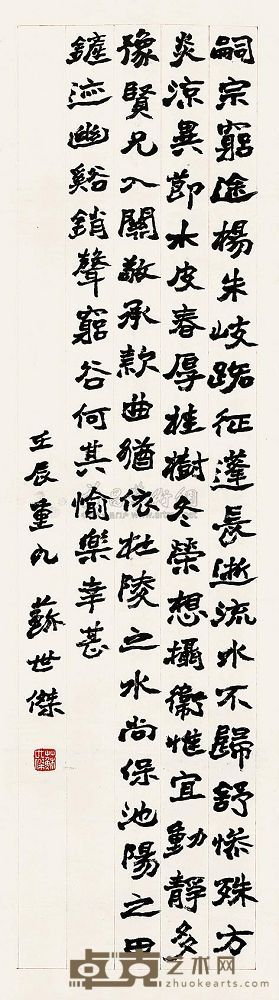 嗣宗窮途楊朱岐路征蓬長逝流水不歸舒慘殊方
炎涼異節木皮春厚桂樹冬榮想攝衛惟宜動靜多
豫賢兄入關敬承款曲猶依杜陵之水尚保池陽之田
鏟迹幽谿銷聲窮谷何其愉樂幸甚
壬辰重九 蘇世傑
卓克艺术网
zhuokearts.com